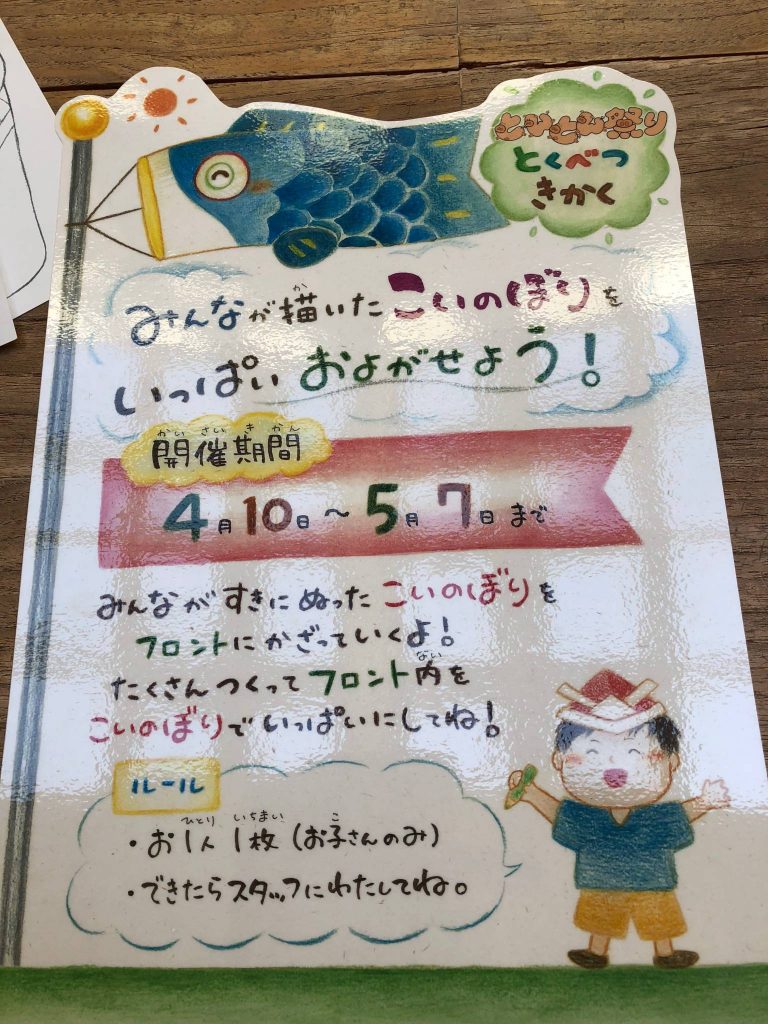 とくべつ
きかく
みんなが描いたこいのぼりを
か
いっぱいおよがせよう!
かいさいきかん
開催期間
4月10日～5月7日まで
みんながすきにぬったこいのぼりを
フロントにかざっていくよ!
ない
たくさんつくってフロント内を
こいのぼりでいっぱいにしてね!
ルール
ひとり いちまい こ
・お1人1枚(お子さんのみ)
・できたらスタッフにわたしてね。